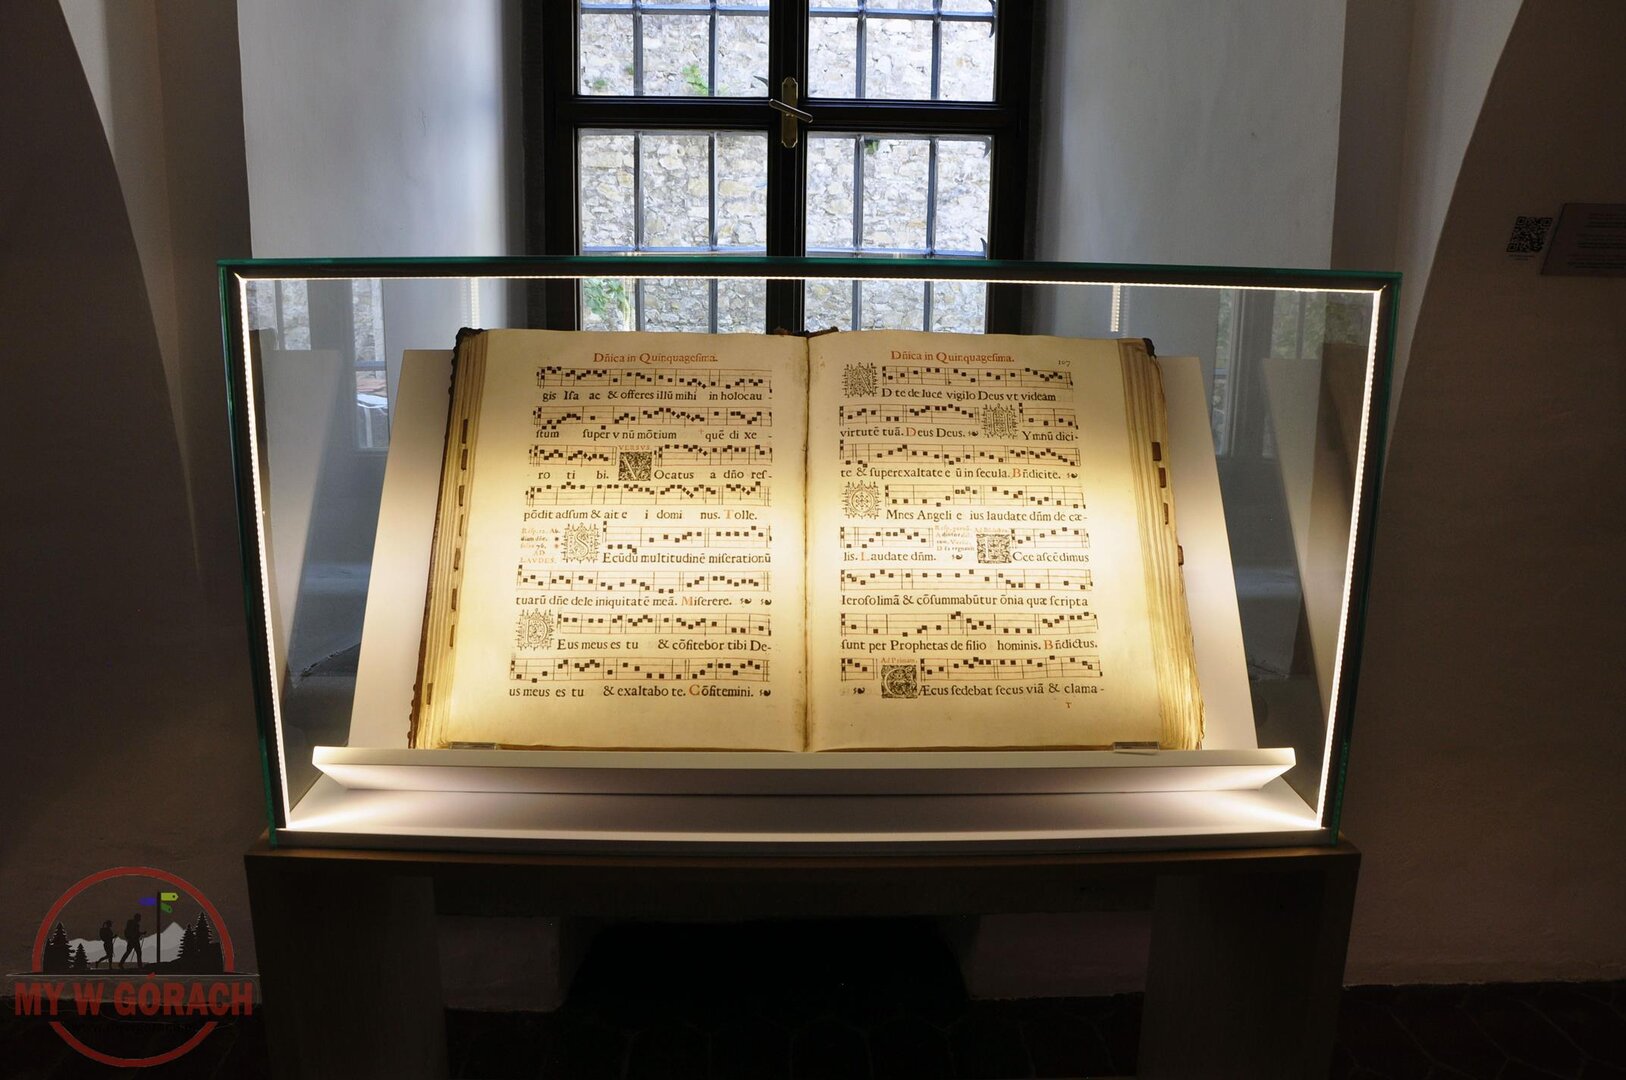 Dñica in Quinquagesima.
gis Isa ac & offeres illũ mihi in holocau
stum super v nũ mõtium quẽ di xe -
ro ti bi. VOcatus a dño res-
põdit adsum & ait e i domi nus. Tolle.
AD
LAVDES.
SEcũdũ multitudinẽ miserationũ
tuarũ dñe dele iniquitatẽ meã. Miserere.
DEus meus es tu & cõfitebor tibi De-
us meus es tu & exaltabo te. Cõfitemini.
Dñica in Quinquagesima.
107
AD te de lucẽ vigilo Deus vt videam
virtutẽ tuã. Deus Deus. HYmnũ dici-
te & superexaltate e ũ in secula. Bñdicite.
OMnes Angeli e ius laudate dñm de cæ-
lis. Laudate dñm. ECce ascẽdimus
Ierosolimã & cõsummabũtur õnia quæ scripta
sunt per Prophetas de filio hominis. Bñdictus.
Ad Primam
CÆcus sedebat secus viã & clama-
MY W GÓRACH